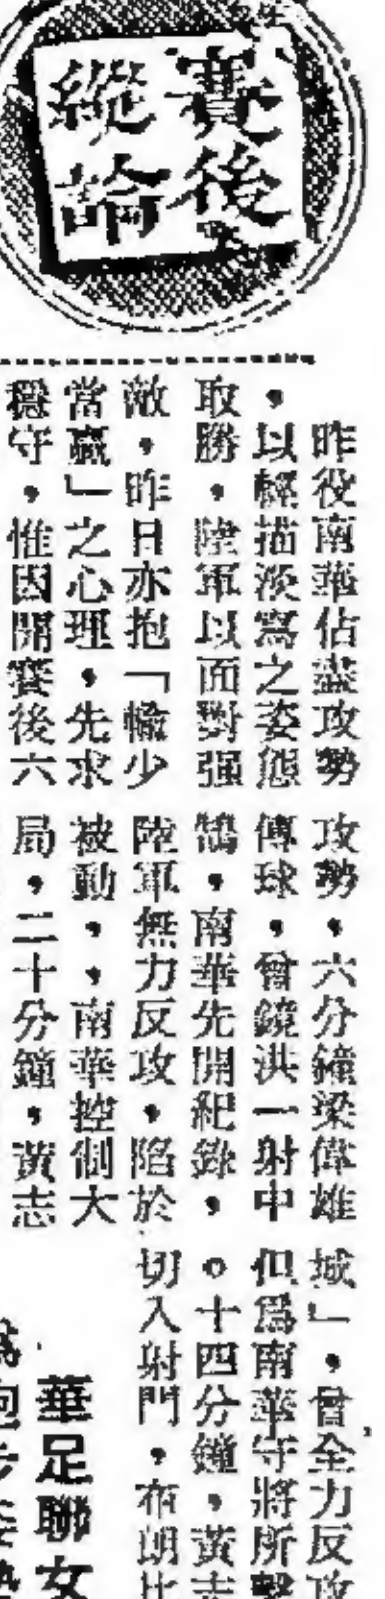 賽後
縱論
昨役南華佔盡攻勢
，以輕描淡寫之姿態
取勝，陸軍以面對强
敵，昨日亦抱「輸少
當贏」之心理，先求
穩守，惟因開賽後六
攻勢，六分鐘梁偉雄
傳球，曾鏡洪一射中
鵠，南華先開紀錄，
陸軍無力反攻，陷於
被動，，南華控制大
局，二十分鐘，黃志
城」，曾全力反攻
但爲南華守將所擊
。十四分鐘，黃志
切入射門，布朗比
華足聯女